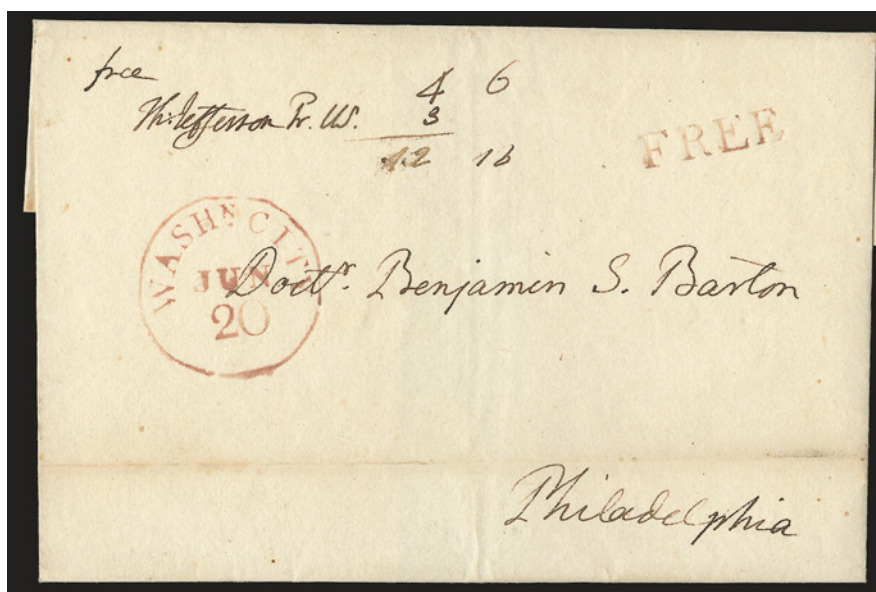 free
Th: Jefferson Pr. US.
4 6
3
12 16
FREE
WASHN. CITY
JUN
20
Doctr. Benjamin S. Barton
Philadelphia